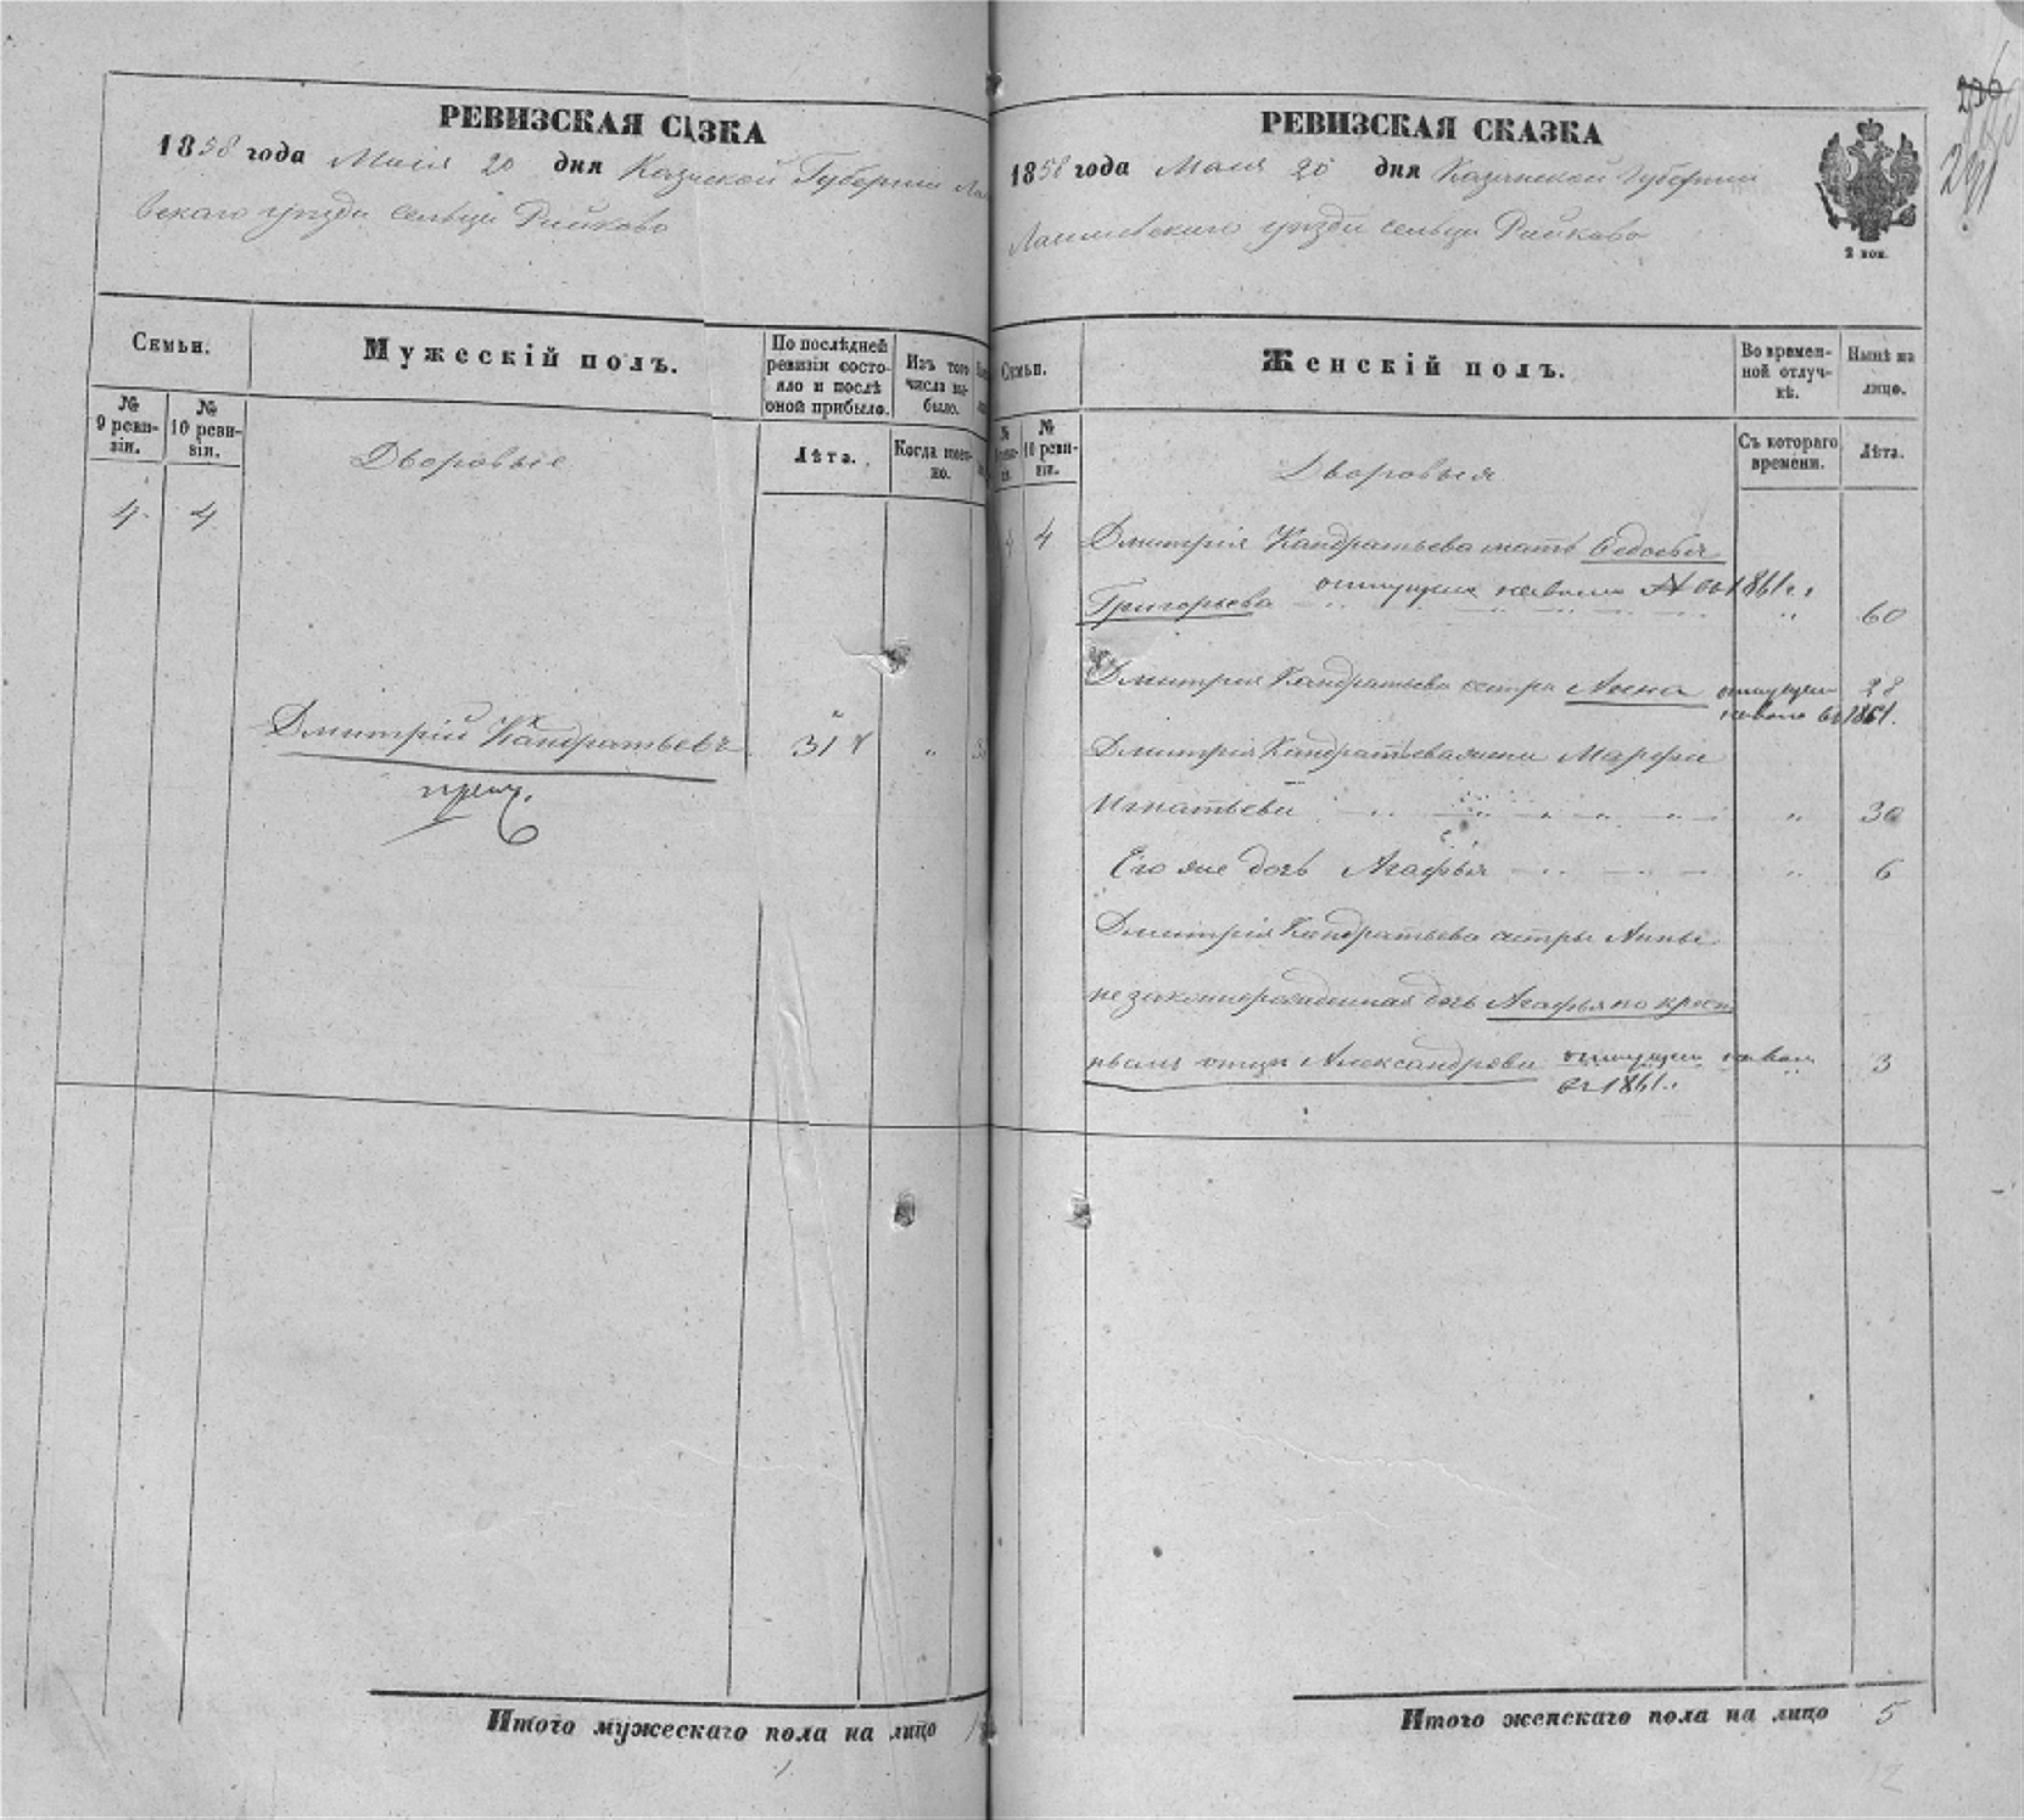 РЕВИЗСКАЯ СКАЗКА
1858 года Маія 20 дня Казанской Губерніи Ла
вскаго уѣзда сельца
Семьи.
Мужескій полъ.
По послѣдней ревизіи состо-
яло и послѣ оной прибыло.
Изъ того числа вы-
было.
№ 9 реви-
зіи.
№ 10 реви-
зіи.
Лѣта.
Когда имен-
но.
Дворовыіе
4 4
Дмитрій Кандратьевъ 31
Итого мужескаго пола на лицо 1
1
РЕВИЗСКАЯ СКАЗКА
1858 года Маія 20 дня Казанской Губерніи
Лаишевскаго уѣзда сельца
2 коп.
236
Семьи.
Женскій полъ.
Во времен-
ной отлуч-
кѣ.
Нынѣ на
лицо.
№ 10 реви-
зіи.
Съ котораго
времени.
Лѣта.
Дворовыея
4 4 Дмитрія Кандратьева мать Федосья
отпущена на волю въ 1861 г.
Григорьева 60
Дмитрія Кандратьева сестра Анна отпущен 28
на волю въ 1861.
Дмитрія Кандратьева жена Марфа
Игнатьева 30
Его же дочь Агафья 6
Дмитрія Кандратьева сестры Анны
незаконнорожденная дочь Агафья по крест
отцу Александрова отпущен на вол 3
въ 1861 г.
Итого женскаго пола на лицо 5
12